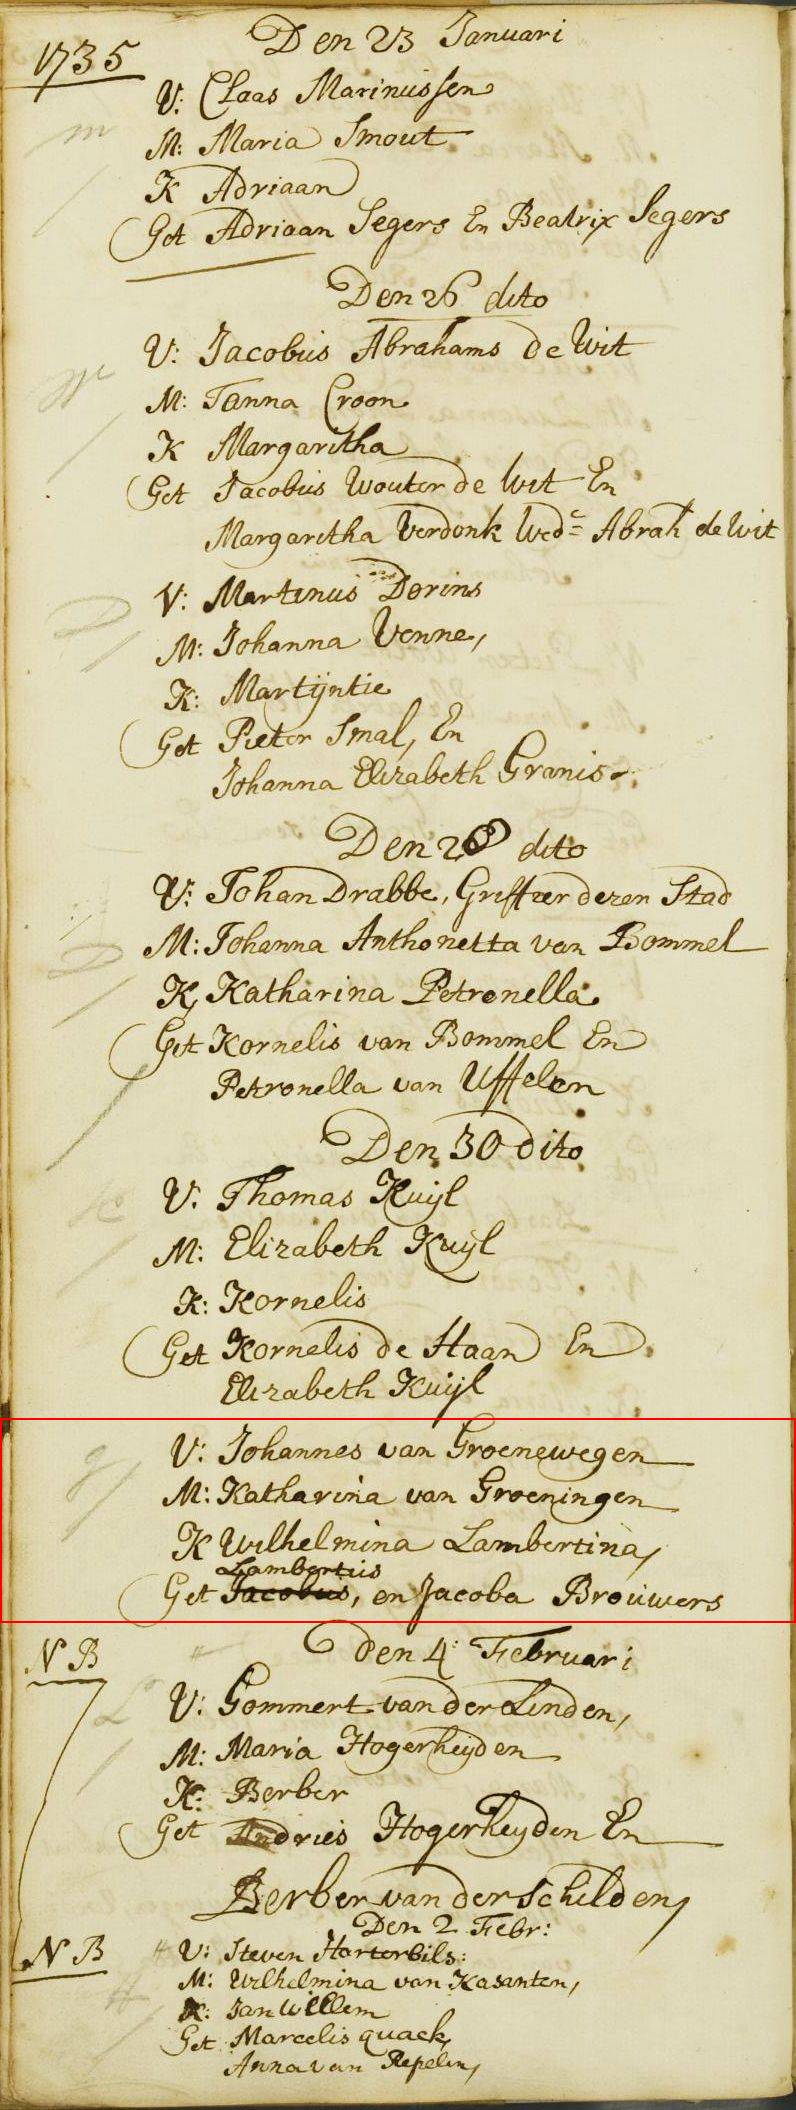 1735
Den 23 Januari
V: Claas Marinussen
M: Maria Smout
K Adriaan
Get Adriaan Segers En Beatrix Segers
Den 26 dito
V: Jacobus Abrahams de Wit
M: Tanna Croon
K Margaritha
Get Jacobus Wouter de Wit En
Margaretha Verdonk Wedᵉ Abrah de Wit
V: Martinus Dorins
M: Johanna Venne,
K: Martijntie
Get Pieter Smal, En
Johanna Elizabeth Granis
Den 28 dito
V: Johan Drabbe, Griffier dezer Stad
M: Johanna Anthonetta van Bommel
K, Katharina Petronella
Get Kornelis van Bommel En
Petronella van Uffelen
Den 30 dito
V. Thomas Kuijl
M: Elizabeth Kuijl
K: Kornelis
Get Kornelis de Haan En
Elizabeth Kuijl
V: Johannes van Groenewegen
M: Katharina van Groeningen
K Wilhelmina Lambertina,
Lambertus
Get Jacobus, en Jacoba Brouwers
NB
Den 4: Februari
V: Gommert van der Linden,
M: Maria Hogerheijden
K: Berber
Get Andries Hogerheyden En
Berber van der Schilden,
Den 2 Febr:
NB
V: Steven Harterbils:
M: Wilhelmina van Kasanten,
K: Jan Willem
Get Marcelis quack,
Anna van Repelen,